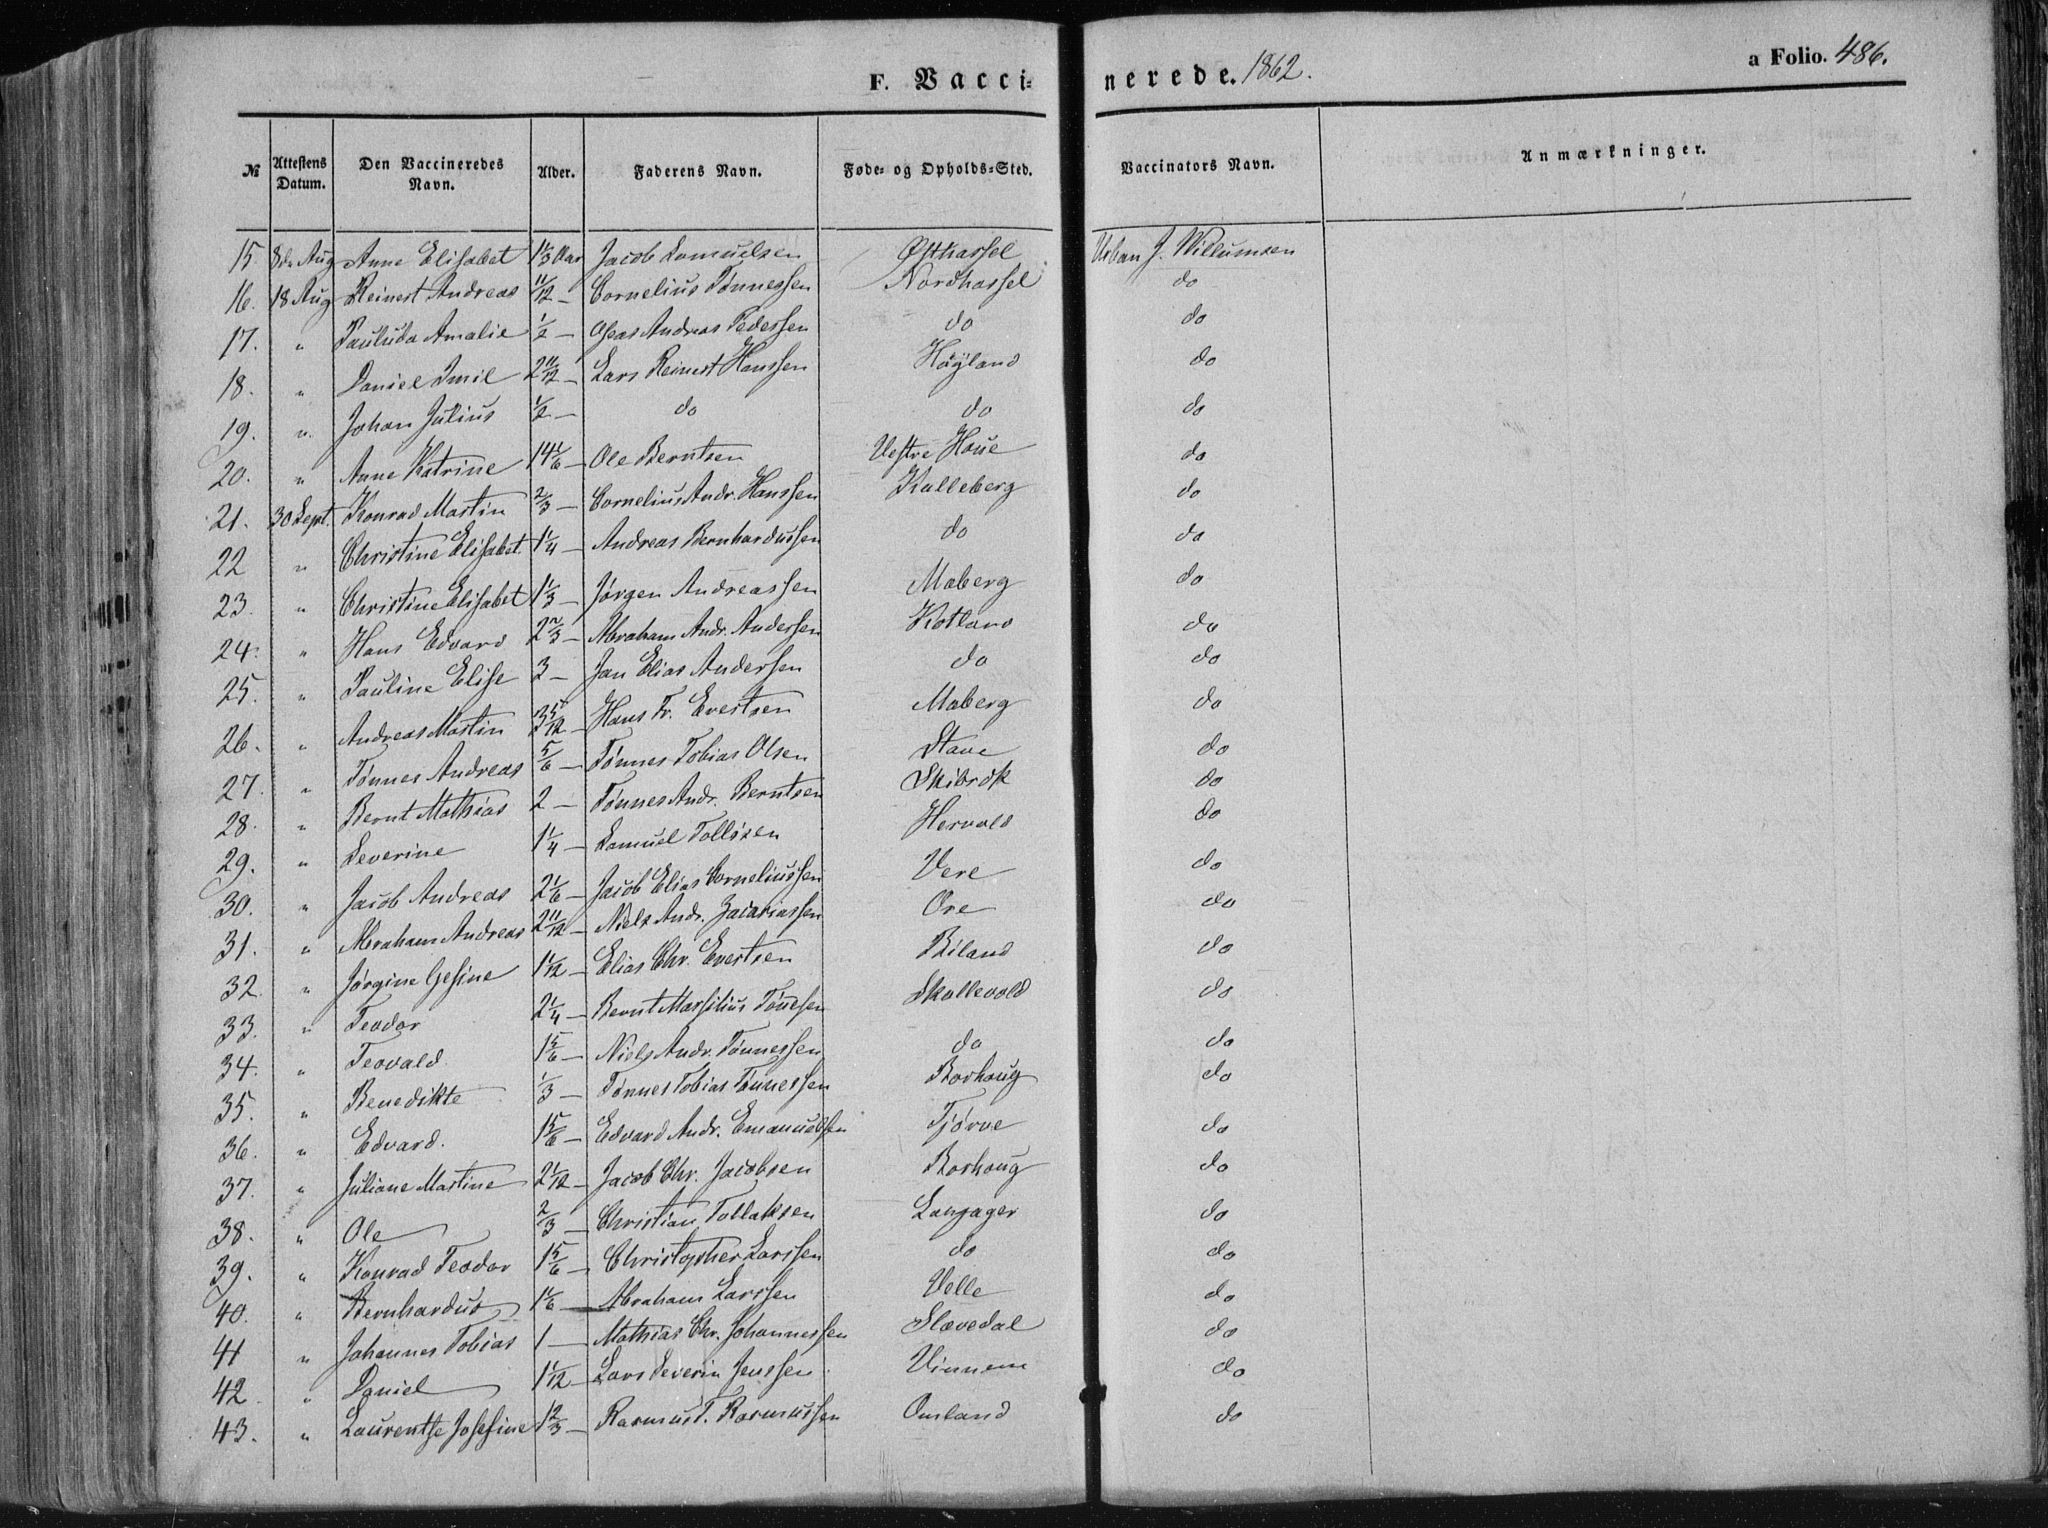 F. Vacci-
nerede. 1862.
a Folio. 486.
№ | Attestens Datum. | Den Vaccineredes Navn. | Alder. | Faderens Navn. | Føde- og Opholds-Sted. | Vaccinators Navn. | Anmærkninger.
15 | 8de Aug | Anne Elisabet | 1 1/3 Aar | Jacob Samuelsen | Østhassel | Urban J. Willumsen
16. | 18 Aug | Reinert Andreas | 11/12 — | Cornelius Tønnessen | Nordhassel | do
17. | " | Pauluda Amalie | 1/2 — | Oseas Andreas Pedersen | do | do
18. | " | Daniel Emil | 2 11/12 — | Lars Reinert Hanssen | Høyland | do
19. | " | Johan Julius | 1/2 — | do | do | do
20. | " | Anne Katrine | 14 1/6 — | Ole Berntsen | Vestre Houe | do
21. | 30 Sept. | Konrad Martin | 2/3 — | Cornelius Andr. Hanssen | Kalleberg | do
22 | " | Christine Elisabet | 1 1/4 — | Andreas Bernhardussen | do | do
23. | " | Christine Elisabet | 1 1/3 — | Jørgen Andreassen | Maberg | do
24. | " | Hans Edvard | 2 2/3 — | Abraham Andr. Andersen | Kotland | do
25. | " | Pauline Elise | 3 — | Jan Elias Andersen | do | do
26. | " | Andreas Martin | 3 5/12 — | Hans Fr. Evertsen | Maberg | do
27. | " | Tønnes Andreas | 5/6 — | Tønnes Tobias Olsen | Stave | do
28. | " | Bernt Mathias | 2 — | Tønnes Andr. Berntsen | Skibrok | do
29. | " | Severine | 1 1/4 — | Samuel Tollisen | Hervold | do
30. | " | Jacob Andreas | 2 1/6 — | Jacob Elias Corneliussen | Vere | do
31. | " | Abraham Andreas | 2 11/12 — | Niels Andr. Zacariassen | Ore | do
32. | " | Jørgine Gesine | 1 1/12 — | Elias Chr. Evertsen | Biland | do
33. | " | Teodor | 2 1/4 — | Bernt Marsilius Tønesen | Skollevold | do
34. | " | Teovald. | 1 5/6 — | Niels Andr. Tønnessen | do | do
35. | " | Benedikte | 1/3 — | Tønnes Tobias Tønnessen | Borhoug | do
36. | " | Edvard. | 1 5/6 — | Edvard Andr. Emanuelsen | Tjørve | do
37. | " | Juliane Martine | 2 1/12 — | Jacob Chr. Jacobsen | Borhoug | do
38. | " | Ole | 2/3 — | Christian Tollaksen | Langager | do
39. | " | Konrad Teodor | 1 5/6 — | Christopher Larssen | do | do
40. | " | Bernhardus | 1 1/6 — | Abraham Larssen | Velle | do
41 | " | Johannes Tobias | 1 — | Mathias Chr. Johannessen | Slævedal | do
42. | " | Daniel | 1 1/12 — | Lars Severin Jenssen | Vinnem | do
43. | " | Laurentse Josefine | 1 2/3 — | Rasmus T. Rasmussen | Omland | do